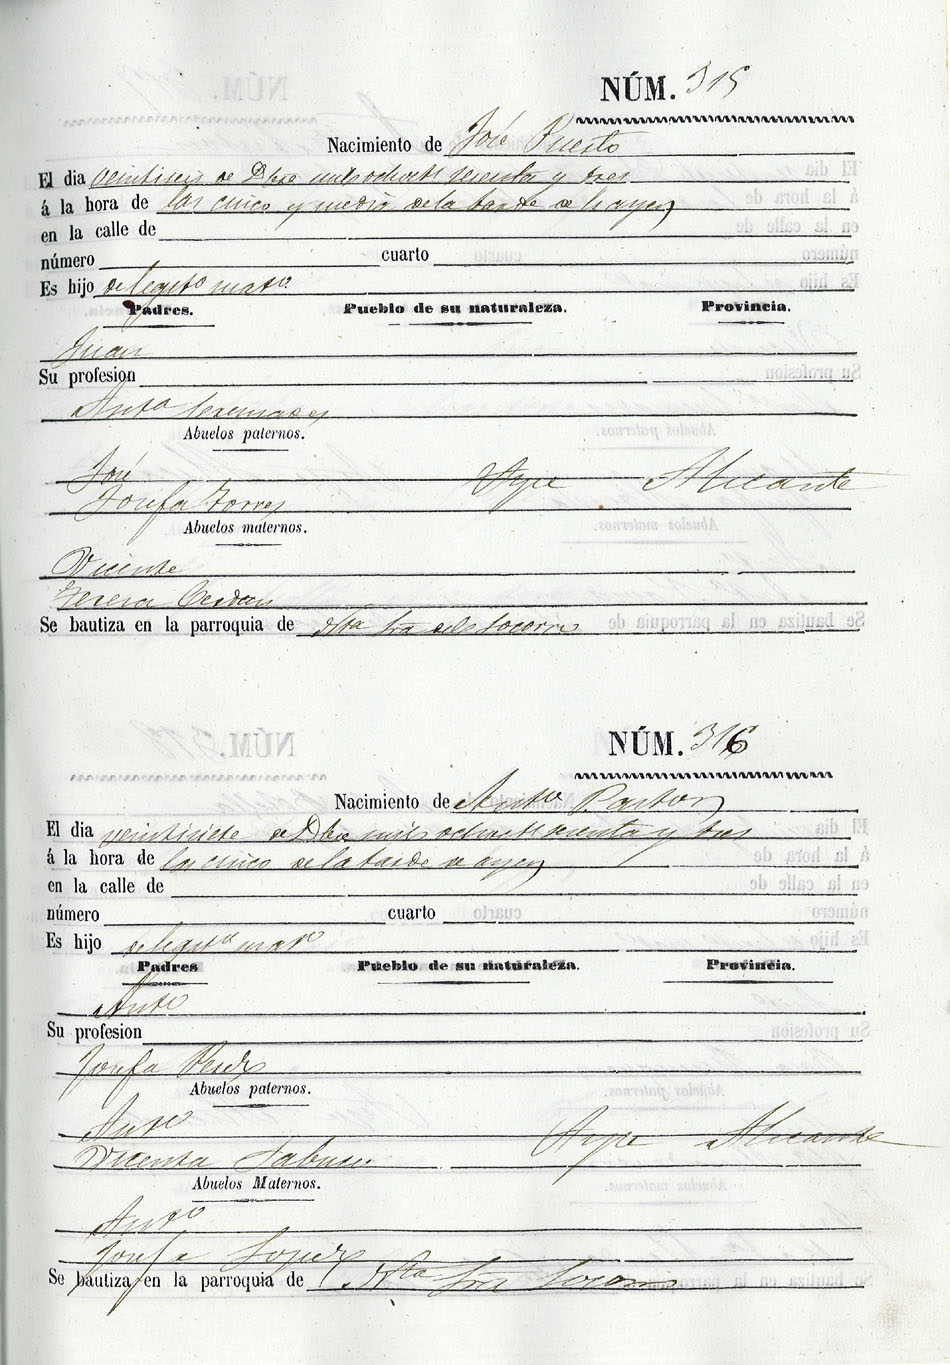 NÚM. 315
Nacimiento de José Puerto
El dia veintiseis de Dbre mil ochocts sesenta y tres
á la hora de las cinco y media de la tarde de hayer
en la calle de
número cuarto
Es hijo de legmo matº
Padres. Pueblo de su naturaleza. Provincia.
Juan
Su profesion
Anta
Abuelos paternos.
José Aspe Alicante
Josefa Torres
Abuelos maternos.
Vicente
Teresa Cerdan
Se bautiza en la parroquia de Ntra Sra del Socorro
NÚM. 316
Nacimiento de Antº Pastor
El dia veintisiete de Dbre mil ochocts sesenta y tres
á la hora de las cinco de la tarde de ayer
en la calle de
número cuarto
Es hijo de legmo matº
Padres Pueblo de su naturaleza. Provincia.
Antº
Su profesion
Josefa
Abuelos paternos.
Antº Aspe Alicante
Vicenta
Abuelos Maternos.
Antº
Josefa Lopez
Se bautiza en la parroquia de Ntra Sra Socorro